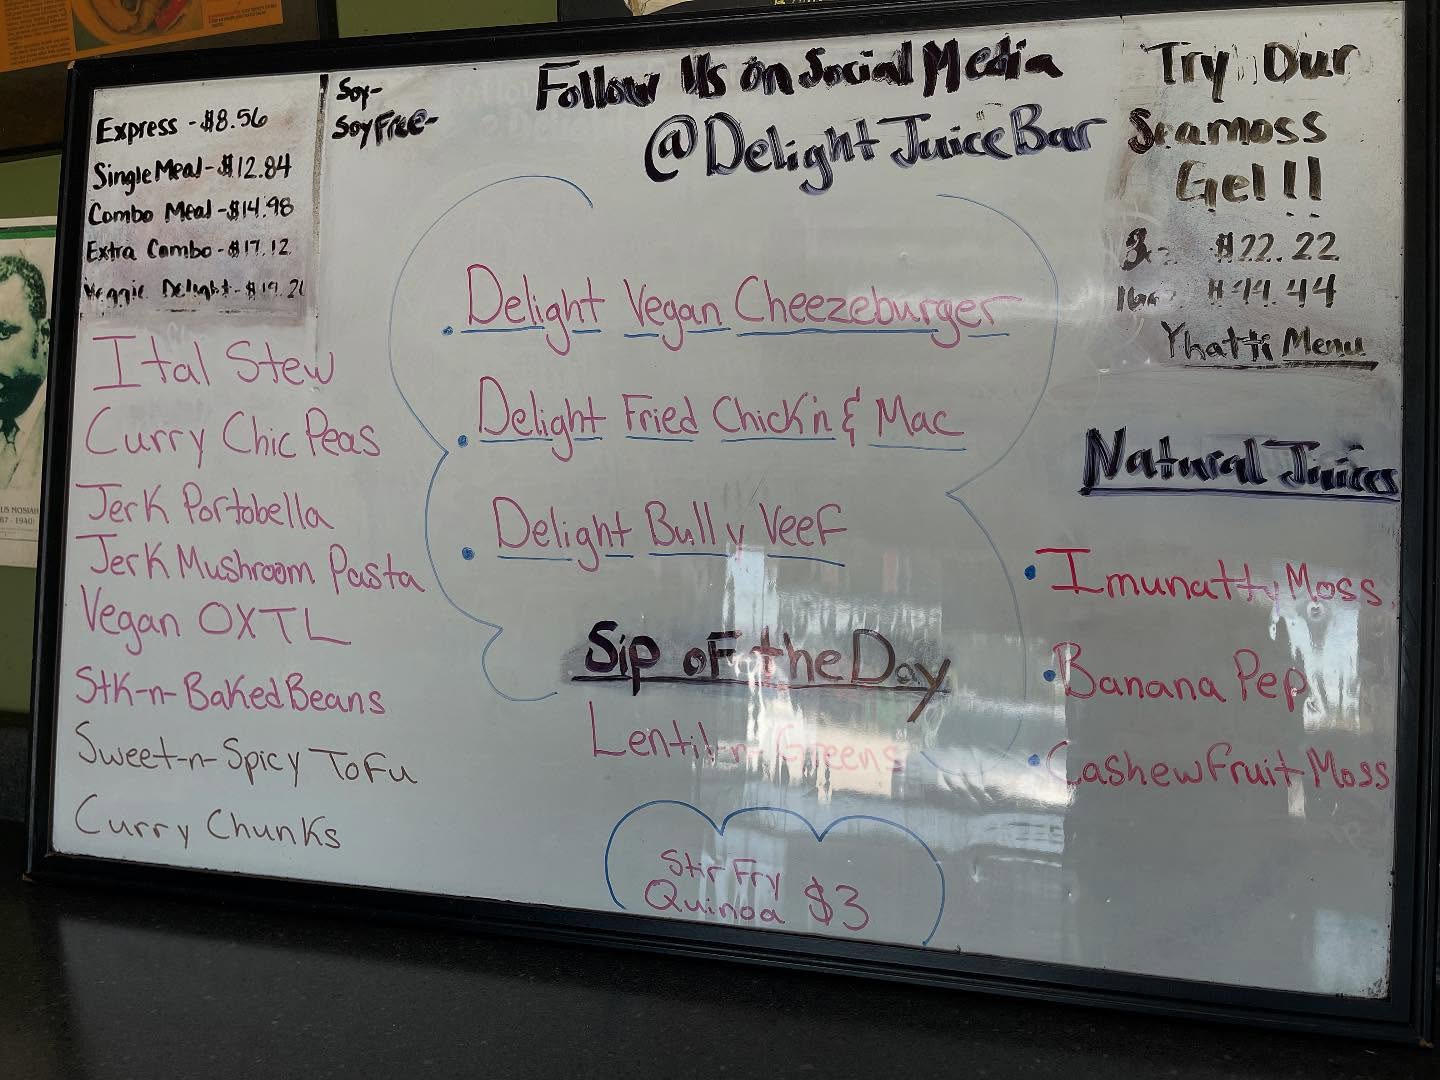 Express - $8.56
Single Meal - $12.84
Combo Meal - $14.98
Extra Combo - $17.12
Veggie Delight - $19.26
Soy-
Soy Free-
Follow Us on Social Media
@DelightJuiceBar
Try Our
Seamoss
Gel!!
$22.22
16oz $44.44
Yhatti Menu
Ital Stew
Curry Chic Peas
Jerk Portobella
Jerk Mushroom Pasta
Vegan OXTL
Stk-n-Baked Beans
Sweet-n-Spicy ToFu
Curry Chunks
• Delight Vegan Cheezeburger
• Delight Fried Chick'n & Mac
• Delight Bully Veef
Sip of the Day
Lentil-n-Greens
Stir Fry
Quinoa $3
Natural Juices
• Imunatty Moss
• Banana Pep
• Cashew fruit Moss